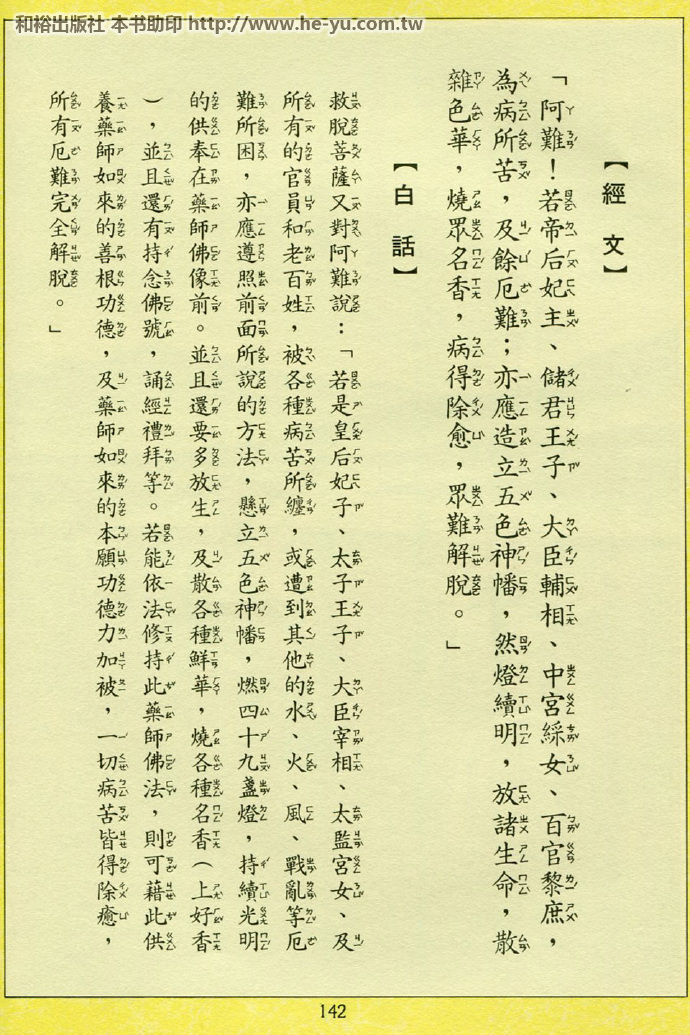 和裕出版社 本书助印 http://www.he-yu.com.tw
【經文】
「阿難！若帝后妃主、儲君王子、大臣輔相、中宮綵女、百官黎庶，
為病所苦，及餘厄難；亦應造立五色神幡，然燈續明，放諸生命，散
雜色華，燒眾名香，病得除愈，眾難解脫。」
【白話】
救脫菩薩又對阿難說：「若是皇后妃子、太子王子、大臣宰相、太監宮女、及
所有的官員和老百姓，被各種病苦所纏，或遭到其他的水、火、風、戰亂等厄
難所困，亦應遵照前面所說的方法，懸立五色神幡，燃四十九盞燈，持續光明
的供奉在藥師佛像前。並且還要多放生，及散各種鮮華，燒各種名香（上好香
），並且還有持念佛號，誦經禮拜等。若能依法修持此藥師佛法，則可藉此供
養藥師如來的善根功德，及藥師如來的本願功德力加被，一切病苦皆得除癒，
所有厄難完全解脫。」
142